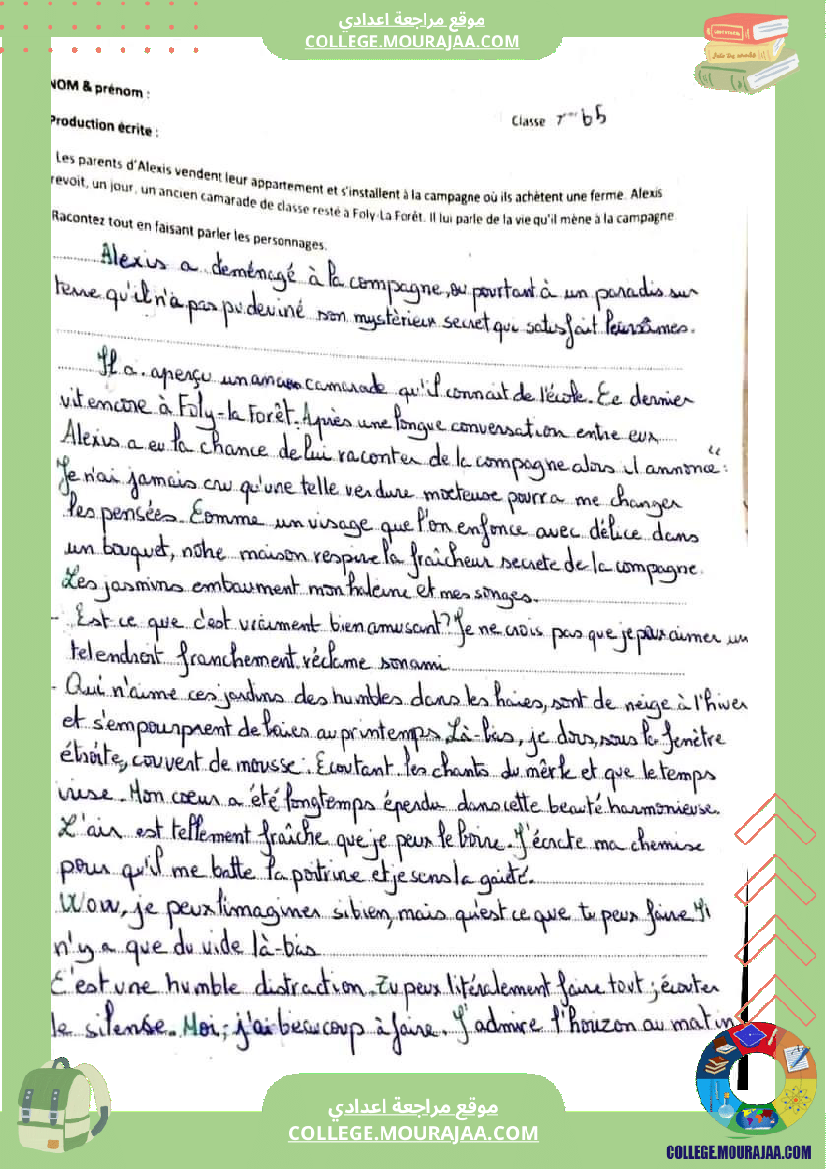 موقع مراجعة اعدادي
COLLEGE.MOURAJAA.COM
NOM & prénom :
Classe 7ème b5
Production écrite :
Les parents d'Alexis vendent leur appartement et s'installent à la campagne où ils achètent une ferme. Alexis
revoit, un jour, un ancien camarade de classe resté à Foly-La Forêt. Il lui parle de la vie qu'il mène à la campagne
Racontez tout en faisant parler les personnages.
Alexis a deménagé à la compagne, ou pourtant à un paradis sur
terre qu'il n'a pas pu deviné son mystèrieux secret qui satisfait leurs âmes.
Il a aperçu un ancien camarade qu'il connait de l'école. Ce dernier
vit encore à Foly-la Forêt. Après une longue conversation entre eux
Alexis a eu la chance de lui raconter de la compagne alors il annonce : "
Je n'ai jamais cru qu'une telle verdure moeteuse pourra me changer
les pensées. Comme un visage que l'on enfonce avec délice dans
un bouquet, notre maison respire la fraîcheur secrete de la compagne.
Les jasmins embaument mon haleine et mes singes.
- Est ce que c'est vraiment bien amusant? Je ne crois pas que je peux aimer un
tel endroit franchement réclame son ami
- Qui n'aime ces jardins des humbles dans les haies, sont de neige à l'hiver
et s'empourprent de baies au printemps. Là-bas, je dors, sous la fenêtre
étroite, couvent de mousse. Ecoutant les chants du mèrle et que le temps
irise. Mon coeur a été longtemps éperdu dans cette beauté harmonieuse.
L'air est tellement fraîche que je peux le boire. J'écarte ma chemise
pour qu'il me batte la poitrine et je sens la gaité.
Wow, je peux l'imaginer si bien, mais qu'est ce que tu peux faire Il
n'y a que du vide là-bas
C'est une humble distraction. Tu peux litéralement faire tout ; écouter
le silense. Moi ; j'ai beaucoup à faire. J'admire l'horizon au matin
موقع مراجعة اعدادي
COLLEGE.MOURAJAA.COM
COLLEGE.MOURAJAA.COM